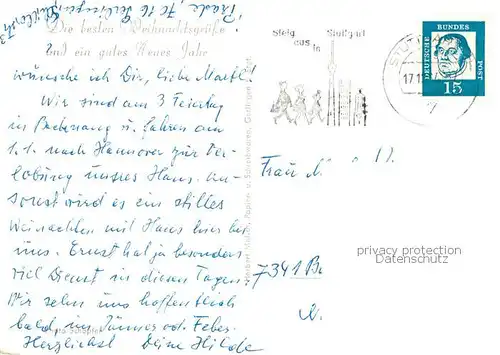 Die besten Weihnachtsgrüße
und ein gutes Neues Jahr
wünsche ich Dir, liebe Martl!
Wir sind am 3 Feiertag
in Backnang u. fahren am
1.1. nach Hannover zur Ver-
lobung unsres Hans. An-
sonst wird es ein stilles
Weinachten mit Hans hier bei
uns. Ernst hat ja besonders
viel Dienst in diesen Tagen.
Wir sehn uns hoffentlich
bald, im Jänner od. Feber.
Herzlichst Deine Hilde
Steig
aus in Stuttgart
STUTTGART
17.12.
DEUTSCHE
BUNDES
POST
15
Frau
7341
privacy protection
Datenschutz